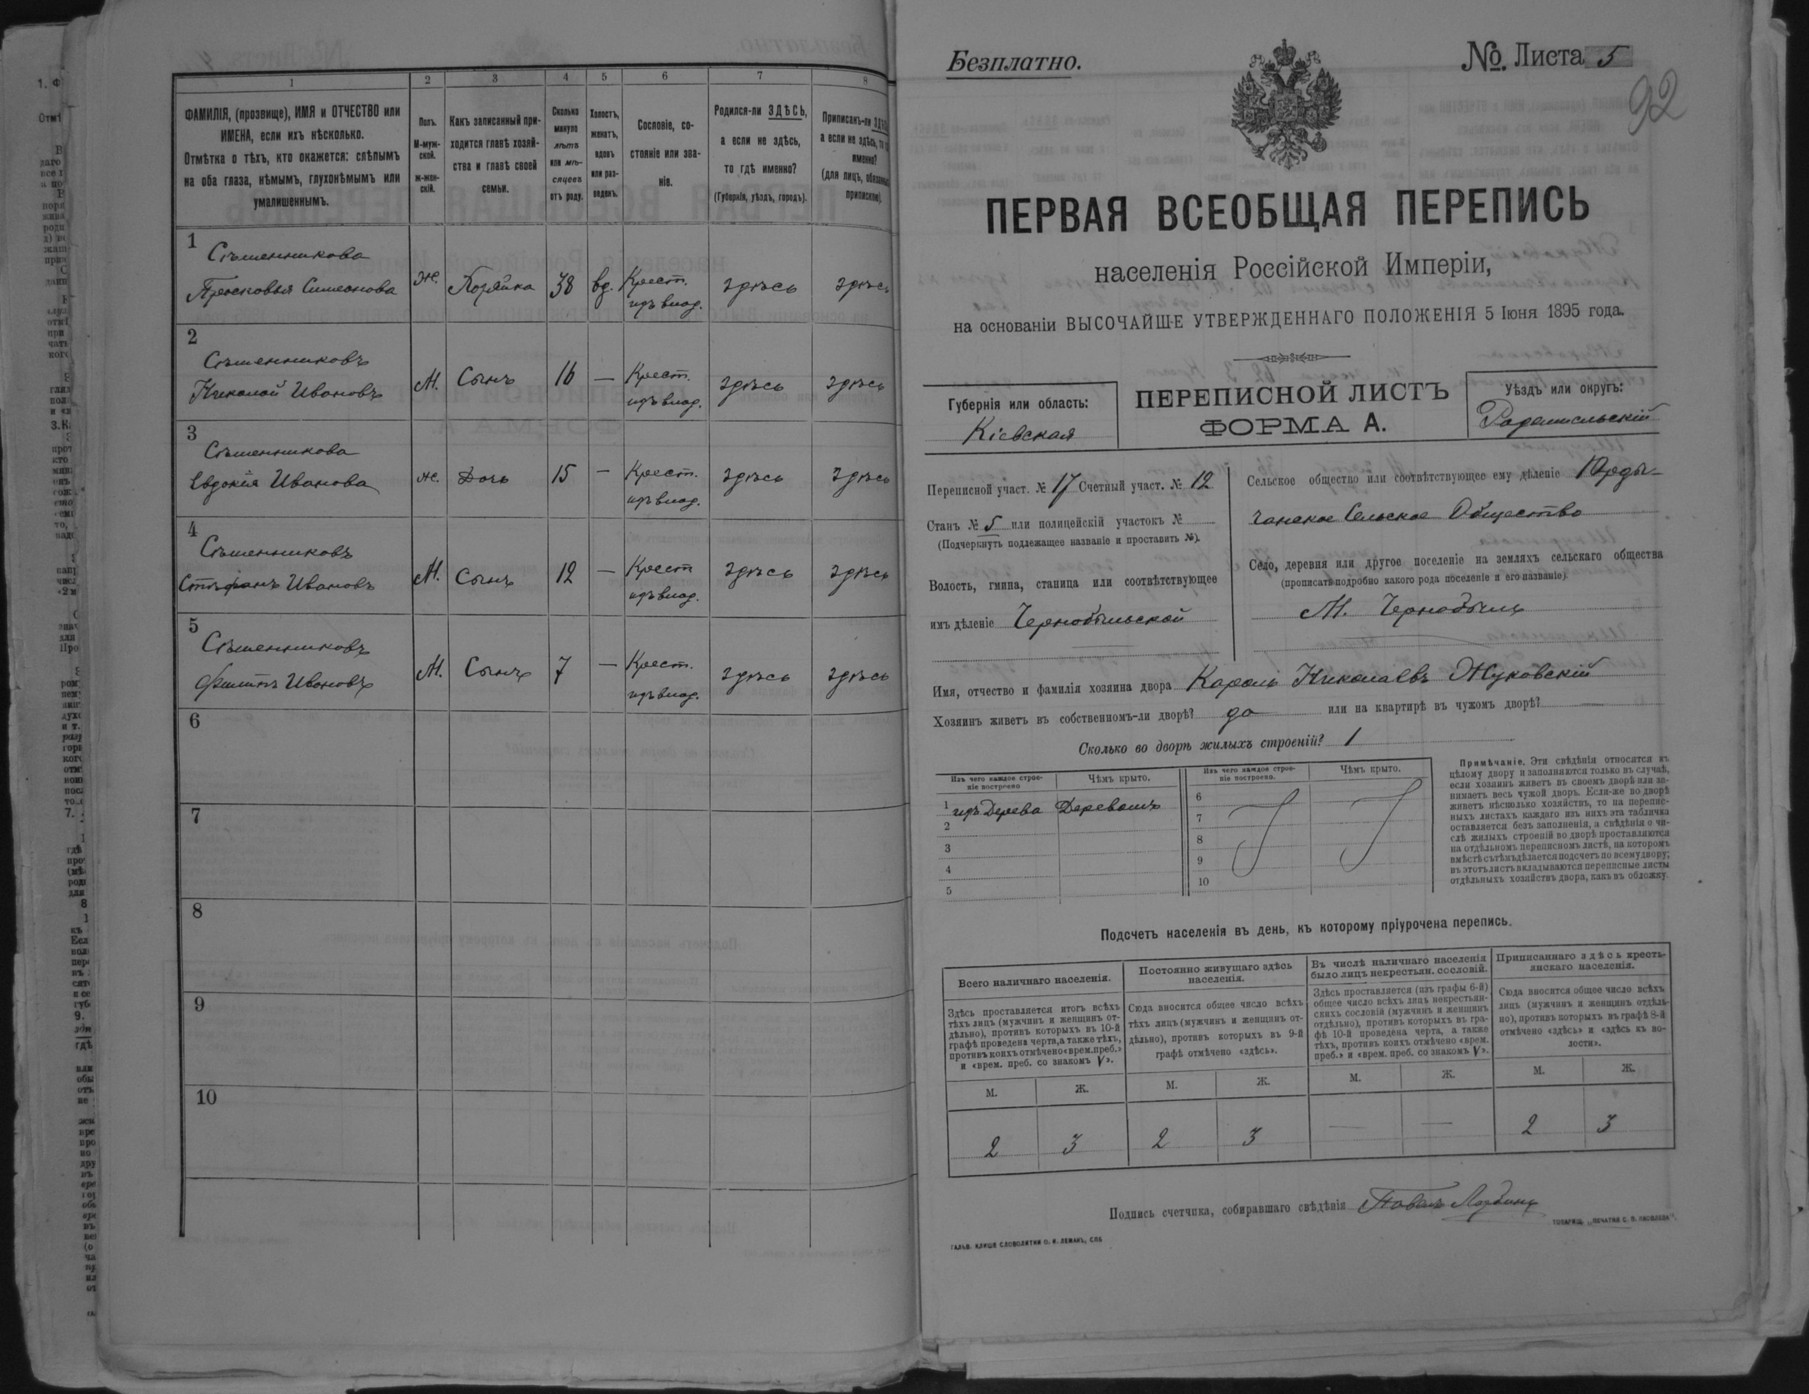 1
2
3
4
5
6
7
8
ФАМИЛІЯ, (прозвище), ИМЯ и ОТЧЕСТВО или
ИМЕНА, если ихъ нѣсколько.
Отмѣтка о тѣхъ, кто окажется: слѣпымъ
на оба глаза, нѣмымъ, глухонѣмымъ или
умалишеннымъ.
Полъ.
М-муж-
ской.
ж-жен-
скій.
Какъ записанный при-
ходится главѣ хозяй-
ства и главѣ своей
семьи.
Сколько
минуло
лѣтъ
или мѣ-
сяцевъ
отъ роду.
Холостъ,
женатъ,
вдовъ
или раз-
веденъ.
Сословіе, со-
стояніе или зва-
ніе.
Родился-ли ЗДѢСЬ,
а если не здѣсь,
то гдѣ именно?
(Губернія, уѣздъ, городъ).
Приписанъ-ли
а если не здѣсь,
именно?
(для лицъ,
1
Прасковья Симеонова
ж.
Хозяйка
38
вд.
Крест.
изъ влад.
здѣсь
здѣсь
2
Николай Ивановъ
М.
Сынъ
16
—
Крест.
изъ влад.
здѣсь
здѣсь
3
Евдокія Иванова
ж.
Дочь
15
—
Крест.
изъ влад.
здѣсь
здѣсь
4
Стефанъ Ивановъ
М.
Сынъ
12
—
Крест
изъ влад.
здѣсь
здѣсь
5
Филипъ Ивановъ
М.
Сынъ
7
—
Крест.
изъ влад.
здѣсь
здѣсь
6
7
8
9
10
Безплатно.
№ Листа 5
92
ПЕРВАЯ ВСЕОБЩАЯ ПЕРЕПИСЬ
населенія Россійской Имперіи,
на основаніи ВЫСОЧАЙШЕ УТВЕРЖДЕННАГО ПОЛОЖЕНІЯ 5 Іюня 1895 года.
Губернія или область:
Кіевская
ПЕРЕПИСНОЙ ЛИСТЪ
ФОРМА А.
Уѣздъ или округъ:
Радомысльскій
Переписной участ. № 17 Счетный участ. № 12
Станъ № 5 или полицейскій участокъ №
(Подчеркнуть подлежащее названіе и проставить №).
Волость, гмина, станица или соотвѣтствующее
имъ дѣленіе Чернобыльской
Сельское общество или соотвѣтствующее ему дѣленіе
Сельское Общество
Село, деревня или другое поселеніе на земляхъ сельскаго общества
(прописать подробно какого рода поселеніе и его названіе)
М. Чернобыль
Имя, отчество и фамилія хозяина двора Кароль Николаевъ Жуковскій
Хозяинъ живетъ въ собственномъ-ли дворѣ? да или на квартирѣ въ чужомъ дворѣ?
Сколько во дворѣ жилыхъ строеній? 1
Изъ чего каждое строе-
ніе построено
Чѣмъ крыто.
Изъ чего каждое строе-
ніе построено.
Чѣмъ крыто.
1 изъ Дерева Деревомъ
2
3
4
5
6
7
8
9
10
Примѣчаніе. Эти свѣдѣнія относятся къ
цѣлому двору и заполняются только въ случаѣ,
если хозяинъ живетъ въ своемъ дворѣ или за-
нимаетъ весь чужой дворъ. Если-же во дворѣ
живетъ нѣсколько хозяйствъ, то на перепис-
ныхъ листахъ каждаго изъ нихъ эта табличка
оставляется безъ заполненія, а свѣдѣнія о чи-
слѣ жилыхъ строеній во дворѣ проставляются
на отдѣльномъ переписномъ листѣ, на которомъ
вмѣстѣ съ тѣмъ дѣлается подсчетъ по всему двору;
въ этотъ листъ вкладываются переписные листы
отдѣльныхъ хозяйствъ двора, какъ въ обложку.
Подсчетъ населенія въ день, къ которому пріурочена перепись.
Всего наличнаго населенія.
Постоянно живущаго здѣсь
населенія.
Въ числѣ наличнаго населенія
было лицъ некрестьян. сословій.
Приписаннаго здѣсь кресть-
янскаго населенія.
Здѣсь проставляется итогъ всѣхъ
тѣхъ лицъ (мужчинъ и женщинъ от-
дѣльно), противъ которыхъ въ 10-й
графѣ проведена черта, а также тѣхъ,
противъ коихъ отмѣчено «врем. преб.»
и «врем. преб. со знакомъ V».
Сюда вносится общее число всѣхъ
тѣхъ лицъ (мужчинъ и женщинъ от-
дѣльно), противъ которыхъ въ 9-й
графѣ отмѣчено «здѣсь».
Здѣсь проставляется (изъ графы 6-й)
общее число всѣхъ лицъ некрестьян-
скихъ сословій (мужчинъ и женщинъ
отдѣльно), противъ которыхъ въ гра-
фѣ 10-й проведена черта, а также
тѣхъ, противъ коихъ отмѣчено «врем.
преб.» и «врем. преб. со знакомъ V».
Сюда вносится общее число всѣхъ
лицъ (мужчинъ и женщинъ отдѣль-
но), противъ которыхъ въ графѣ 8-й
отмѣчено «здѣсь» и «здѣсь къ во-
лости».
М.
Ж.
М.
Ж.
М.
Ж.
М.
Ж.
2
3
2
3
—
—
2
3
Подпись счетчика, собиравшаго свѣдѣнія
ГАЛЬВ. КЛИШЕ СЛОВОЛИТНИ О. И. ЛЕМАНЪ, СПБ
ТОВАРИЩ. „ПЕЧАТНЯ С. П. ЯКОВЛЕВА".